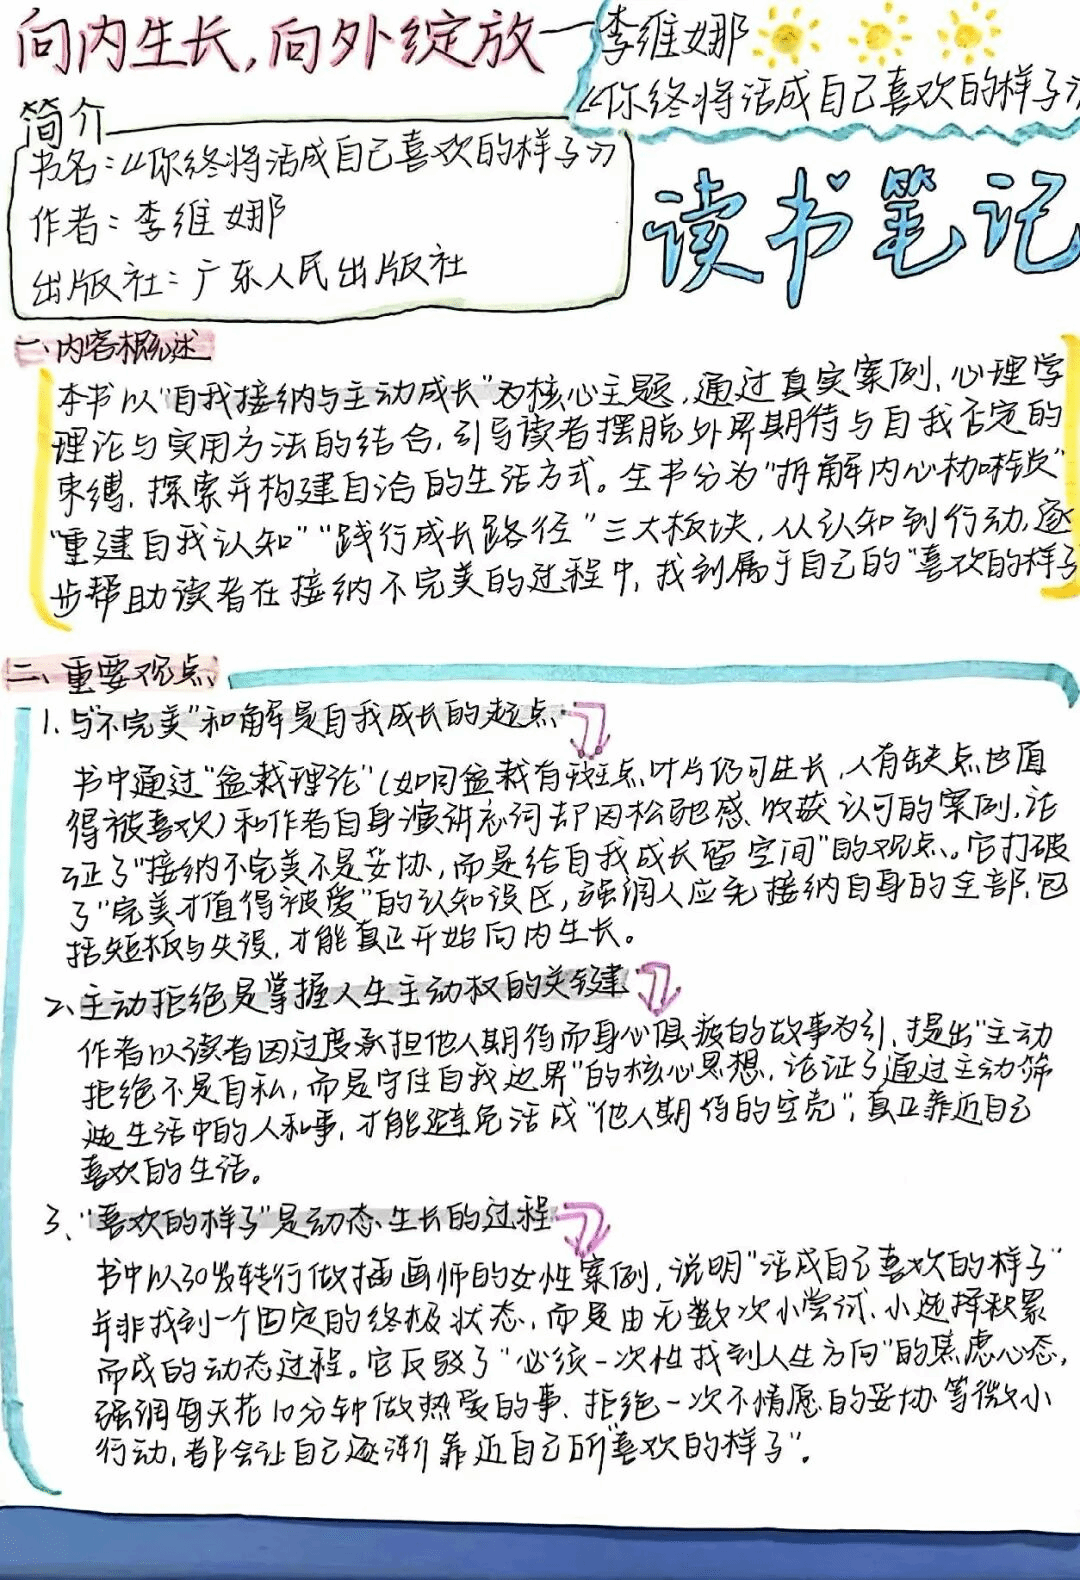 向内生长,向外绽放—李维娜
《你终将活成自己喜欢的样子》
读书笔记
简介
书名:《你终将活成自己喜欢的样子》
作者:李维娜
出版社:广东人民出版社
一、内容概述
本书以“自我接纳与主动成长”为核心主题,通过真实案例、心理学
理论与实用方法的结合,引导读者摆脱外界期待与自我否定的
束缚,探索并构建自洽的生活方式。全书分为“拆解内心枷锁”
“重建自我认知”“践行成长路径”三大板块,从认知到行动,逐
步帮助读者在接纳不完美的过程中,找到属于自己的“喜欢的样子
二、重要观点
1、与“不完美”和解是自我成长的起点
书中通过“盆栽理论”(如同盆栽有斑点、叶片仍可生长,人有缺点也值
得被喜欢)和作者自身演讲忘词却因松弛感、收获认可的案例,论
证了“接纳不完美不是妥协,而是给自我成长留空间”的观点。它打破
了“完美才值得被爱”的认知误区,强调人应先接纳自身的全部,包
括短板与失误,才能真正开始向内生长。
2、主动拒绝是掌握人生主动权的关键
作者以读者因过度承担他人期待而身心俱疲的故事为引,提出“主动
拒绝不是自私,而是守住自我边界”的核心思想,论证了通过主动筛
选生活中的人和事,才能避免活成“他人期待的空壳”,真正靠近自己
喜欢的生活。
3、“喜欢的样子”是动态生长的过程
书中以30岁转行做插画师的女性案例,说明“活成自己喜欢的样子”
并非找到一个固定的终极状态,而是由无数次小尝试、小选择积累
而成的动态过程。它反驳了“必须一次性找到人生方向”的焦虑心态,
强调每天花10分钟做热爱的事、拒绝一次不情愿的妥协等微小
行动,都会让自己逐渐靠近自己所“喜欢的样子”。